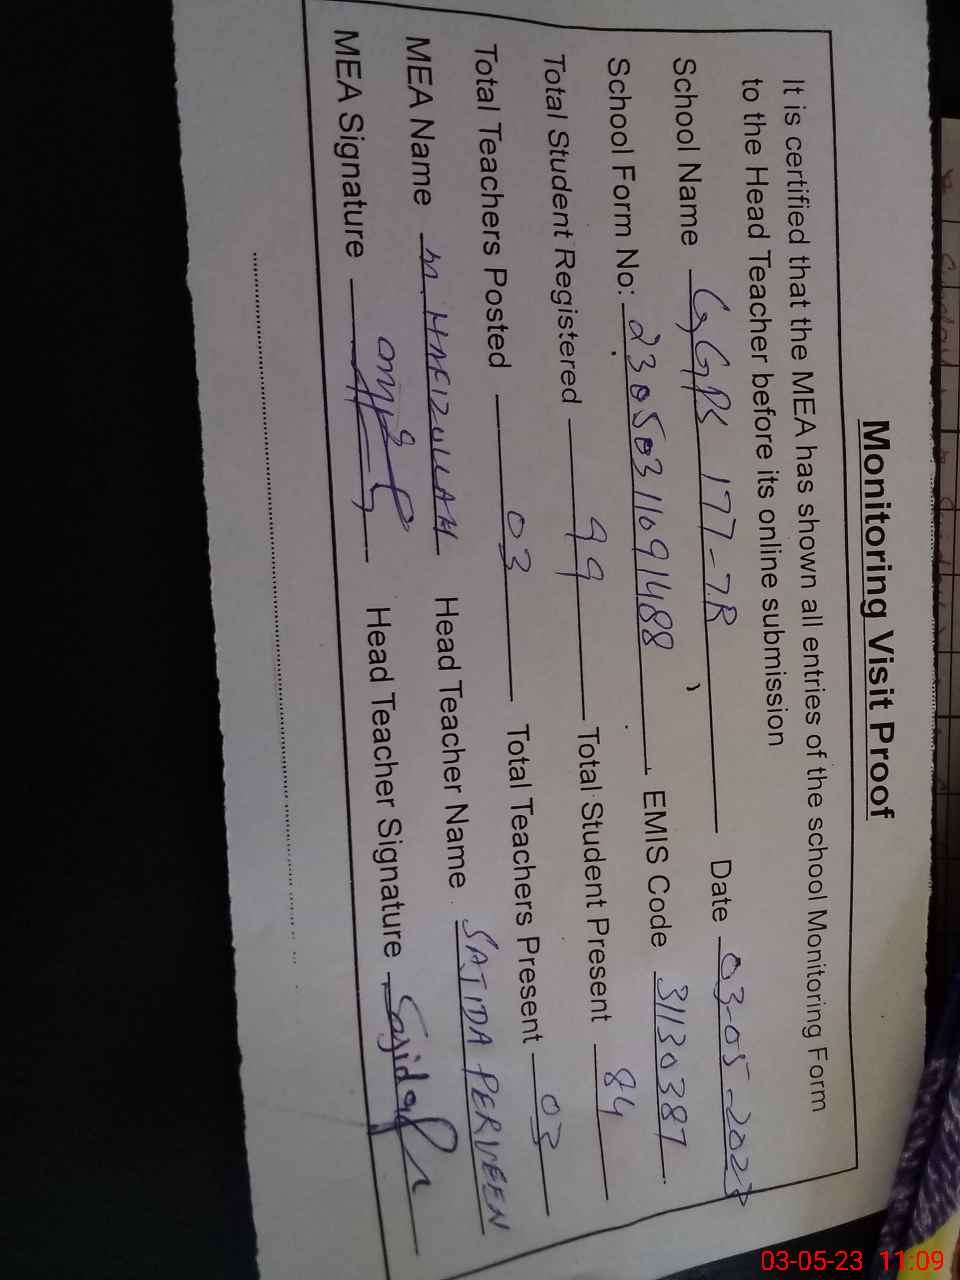 Monitoring Visit Proof
It is certified that the MEA has shown all entries of the school Monitoring Form
to the Head Teacher before its online submission
School Name GGPS 177-7.R Date 03-05-2023
School Form No: 23050311091488 EMIS Code 31130387
Total Student Registered 99 Total Student Present 84
Total Teachers Posted 03 Total Teachers Present 03
MEA Name M. HAFIZULLAH Head Teacher Name SAJIDA PERVEEN
MEA Signature Head Teacher Signature Sajida P
03-05-23 11:09